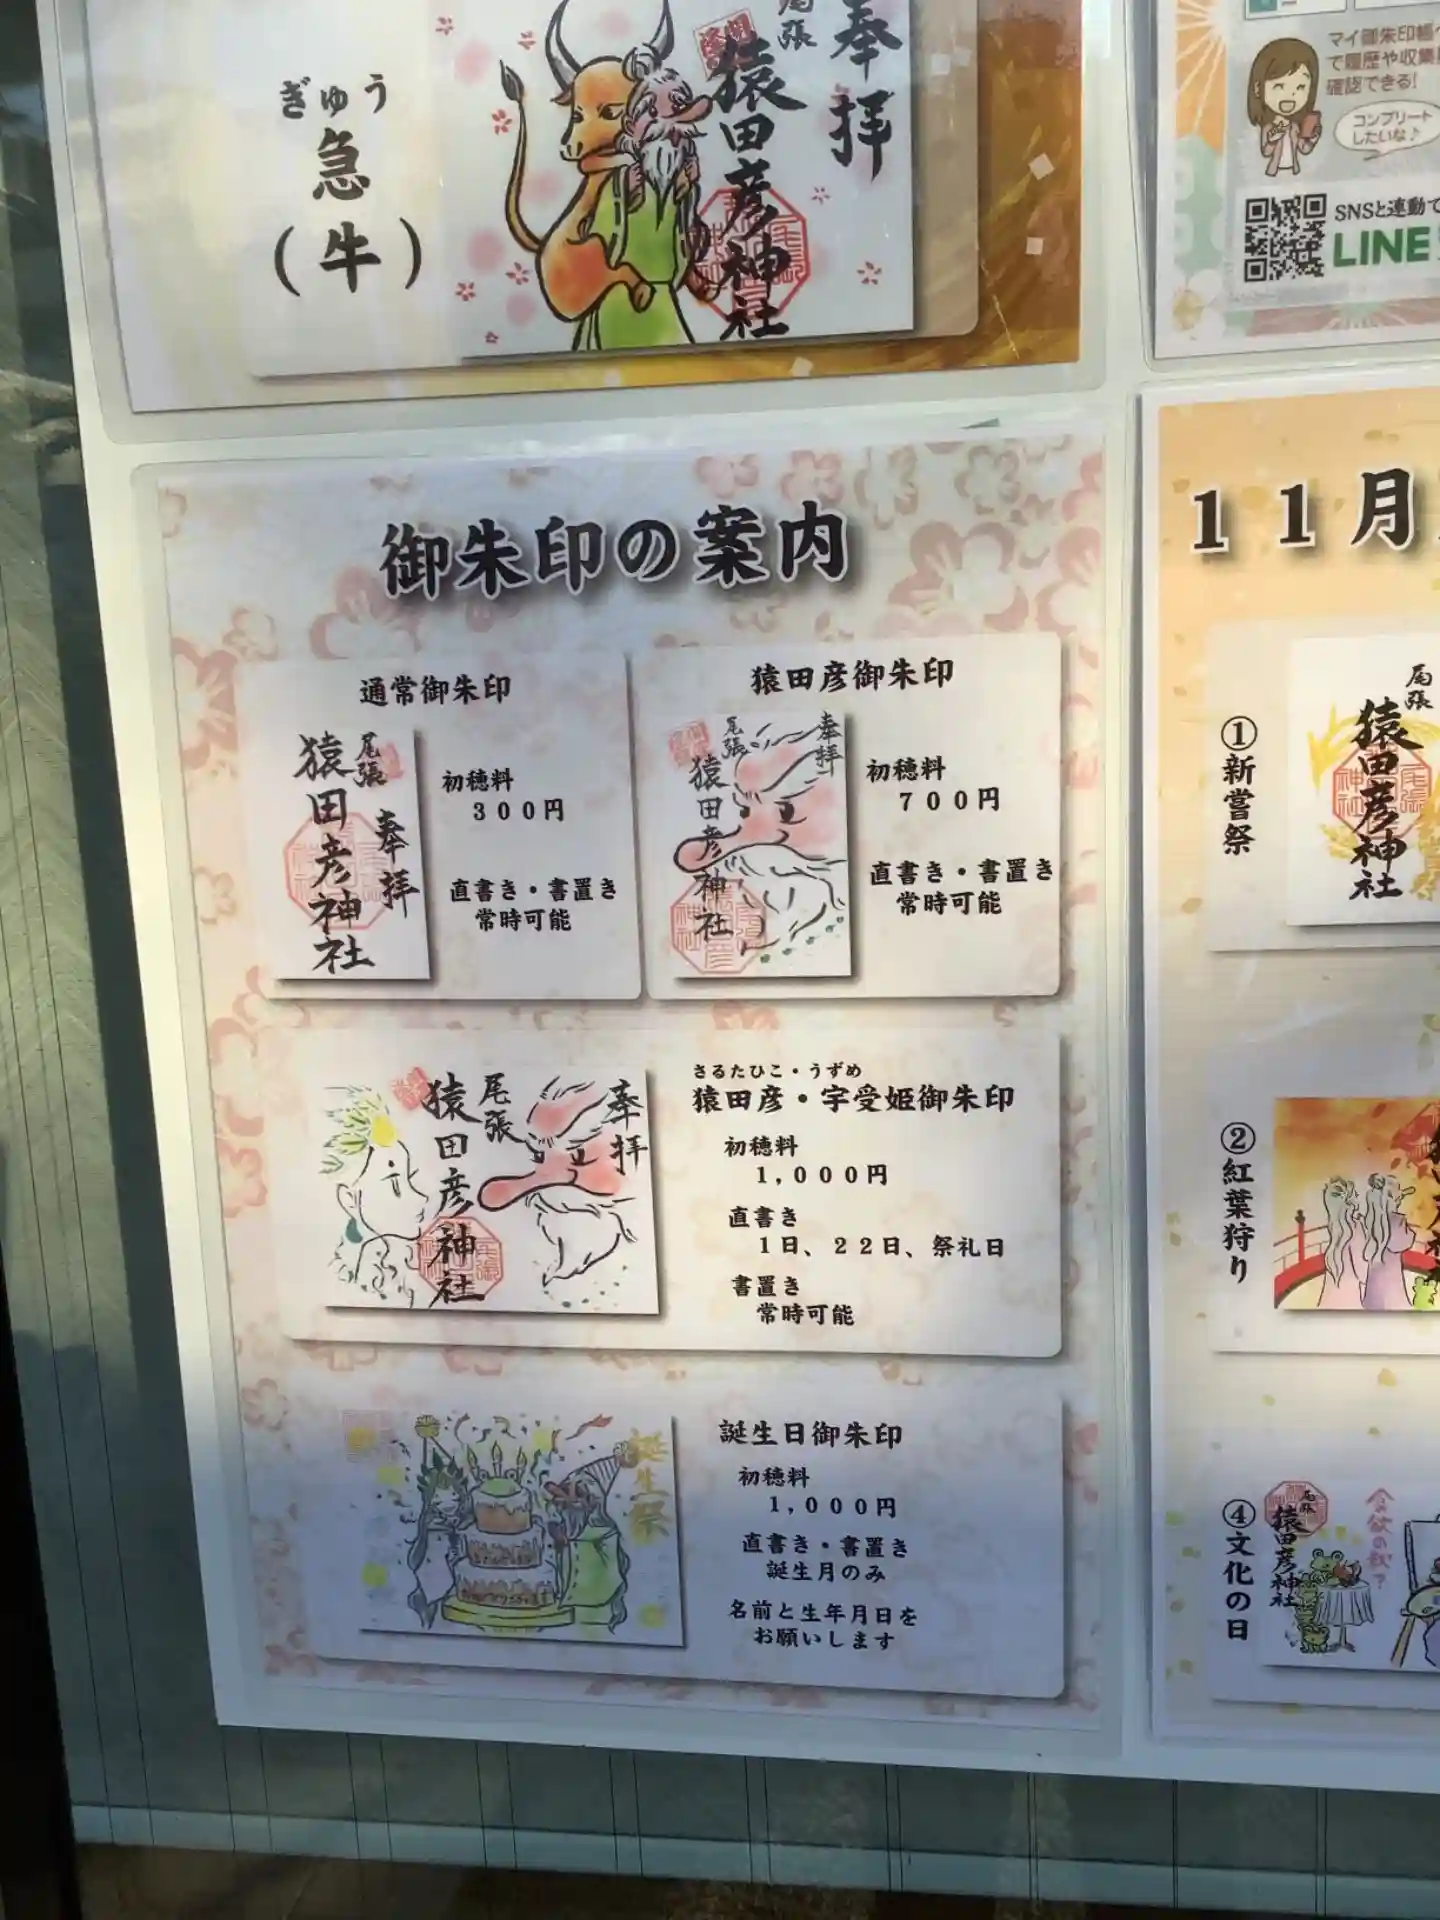 ぎゅう
急
(牛)
奉拝
尾張
猿田彦神社
マイ御朱印帳
で履歴や収集
確認できる!
コンプリート
したいな♪
SNSと連動で
LINE
御朱印の案内
通常御朱印
奉拝
尾張
猿田彦神社
初穂料
300円
直書き・書置き
常時可能
猿田彦御朱印
奉拝
尾張
猿田彦神社
初穂料
700円
直書き・書置き
常時可能
奉拝
尾張
猿田彦神社
さるたひこ・うずめ
猿田彦・宇受姫御朱印
初穂料
1,000円
直書き
1日、22日、祭礼日
書置き
常時可能
誕生祭
誕生日御朱印
初穂料
1,000円
直書き・書置き
誕生月のみ
名前と生年月日を
お願いします
11月
①新嘗祭
尾張
猿田彦神社
②紅葉狩り
④文化の日
尾張
猿田彦神社